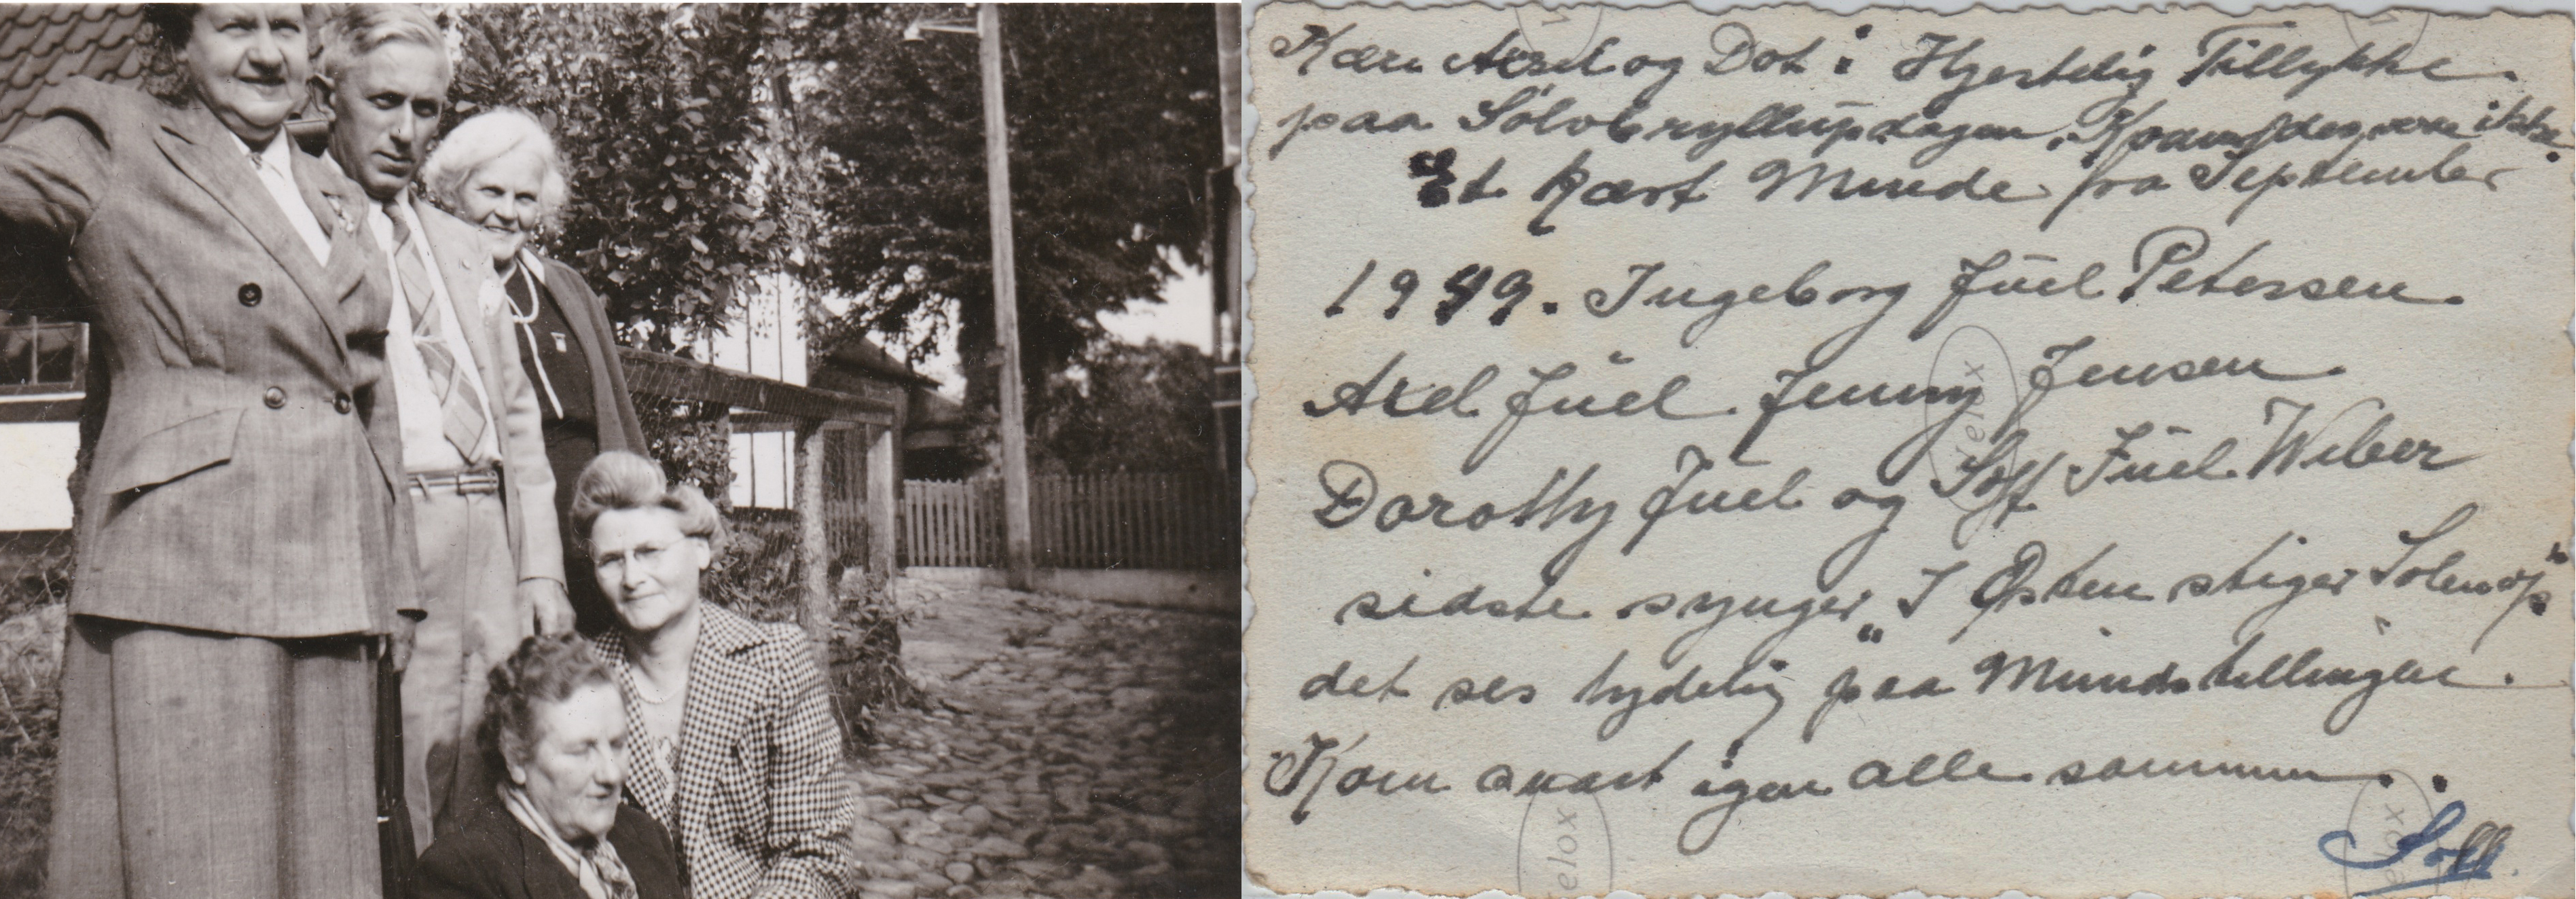 Kære Axel og Dot i Hjertelig Tillykke.
paa Sølvbryllupsdagen. Kom desværre ikke.
Et kært Minde fra September
1949. Ingeborg Juel Petersen.
Axel Juel. Jenny Jensen.
Dorothy Juel og Soff Juel Weber
sidste synger „I Østen stiger Solen op"
det ses tydelig paa Mundstillingen.
Kom snart igen alle sammen.
Soff.
Velox
Velox